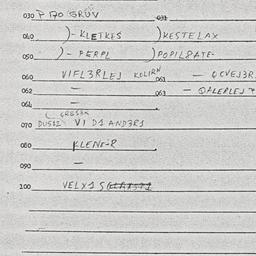 030 P PO GRUV 031
040 )- KLETKES )KESTELAX
050 )- PERPL )POPILRATE-
060 VIFL3RLEJ KOLIRN 061 - QCVEJ3R
062 - 063 - QALERLEJ
064 -
070 DUS12 VI D1 AND3R1
080 KLENE-R
090 -
100 VELX1 S